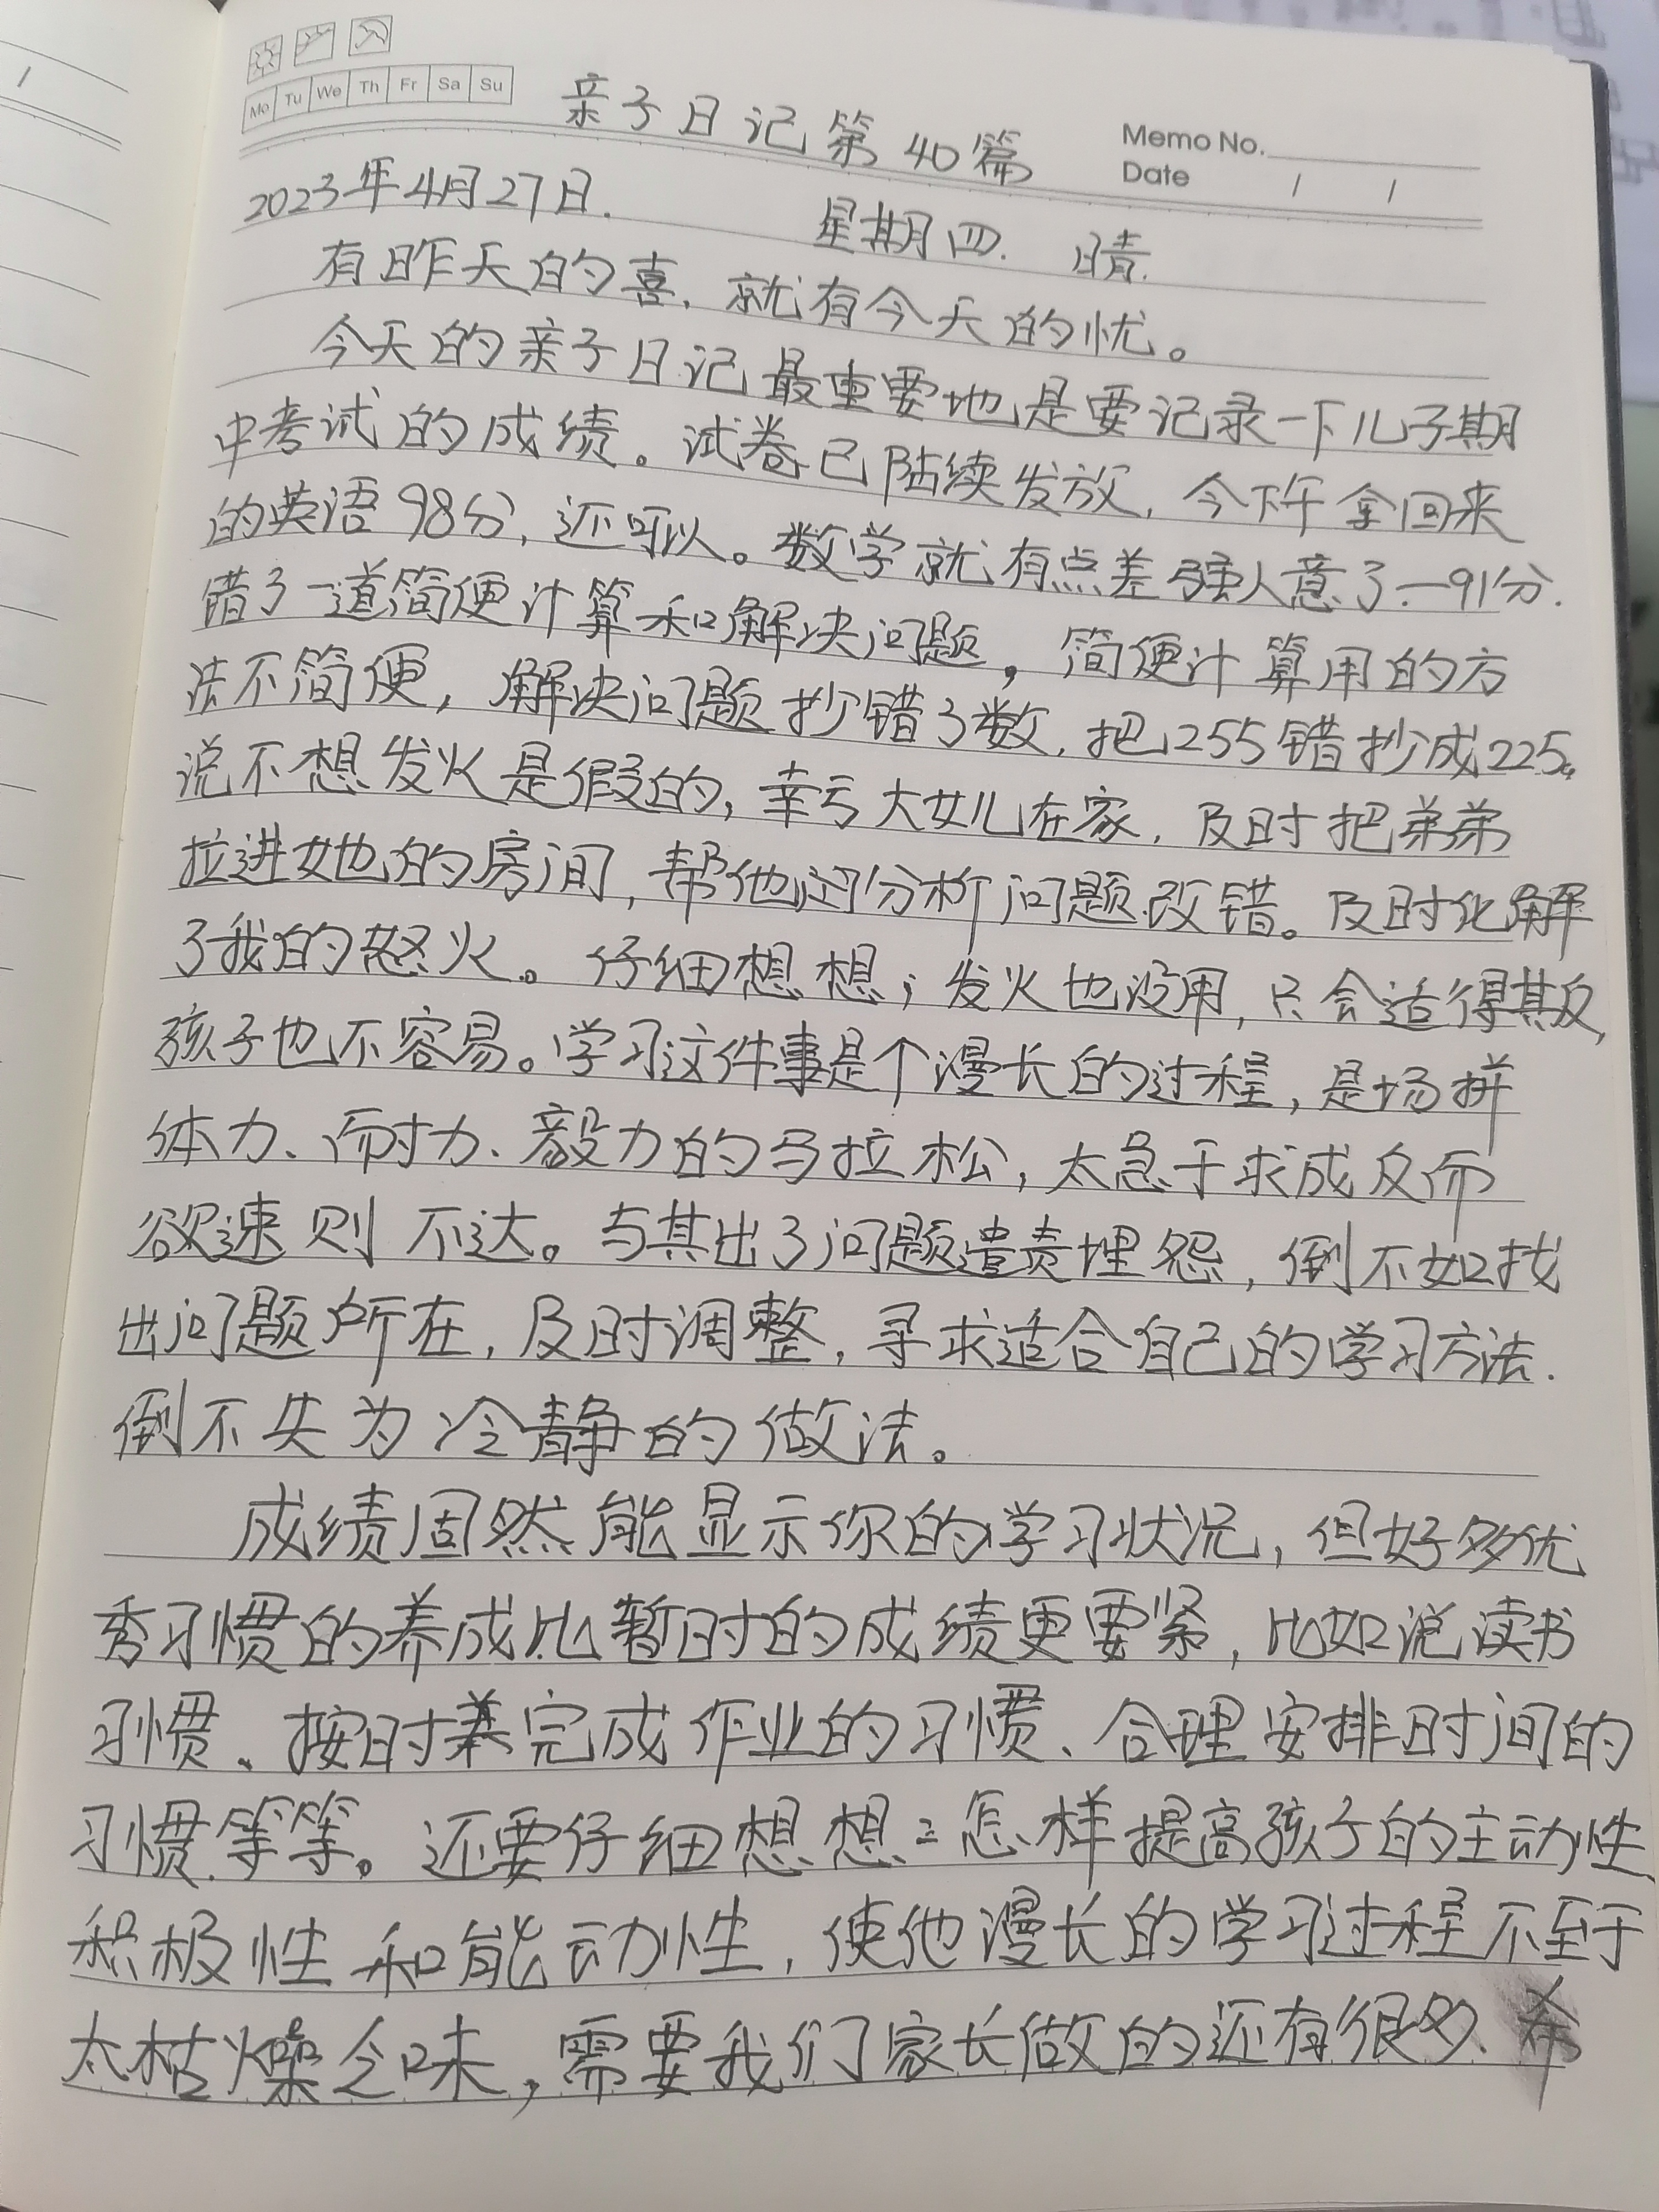 Mo Tu We Th Fr Sa Su
亲子日记第40篇
Memo No.
Date / /
2023年4月27日. 星期四. 晴.
有昨天的喜,就有今天的忧。
今天的亲子日记最重要地是要记录一下儿子期
中考试的成绩。试卷已陆续发放,今下午拿回来
的英语98分,还可以。数学就有点差强人意了—91分.
错了一道简便计算和解决问题,简便计算用的方
法不简便,解决问题抄错了数,把255错抄成225。
说不想发火是假的,幸亏大女儿在家,及时把弟弟
拉进她的房间,帮他分析问题改错。及时化解
了我的怒火。仔细想想,发火也没用,只会适得其反,
孩子也不容易。学习这件事是个漫长的过程,是场拼
体力、耐力、毅力的马拉松,太急于求成反而
欲速则不达。与其出了问题遣责埋怨,倒不如找
出问题所在,及时调整,寻求适合自己的学习方法.
倒不失为冷静的做法。
成绩固然能显示你的学习状况,但好多优
秀习惯的养成比暂时的成绩更要紧,比如说读书
习惯、按时完成作业的习惯、合理安排时间的
习惯等等。还要仔细想想:怎样提高孩子的主动性、
积极性和能动性,使他漫长的学习过程不至于
太枯燥乏味,需要我们家长做的还有很多、希